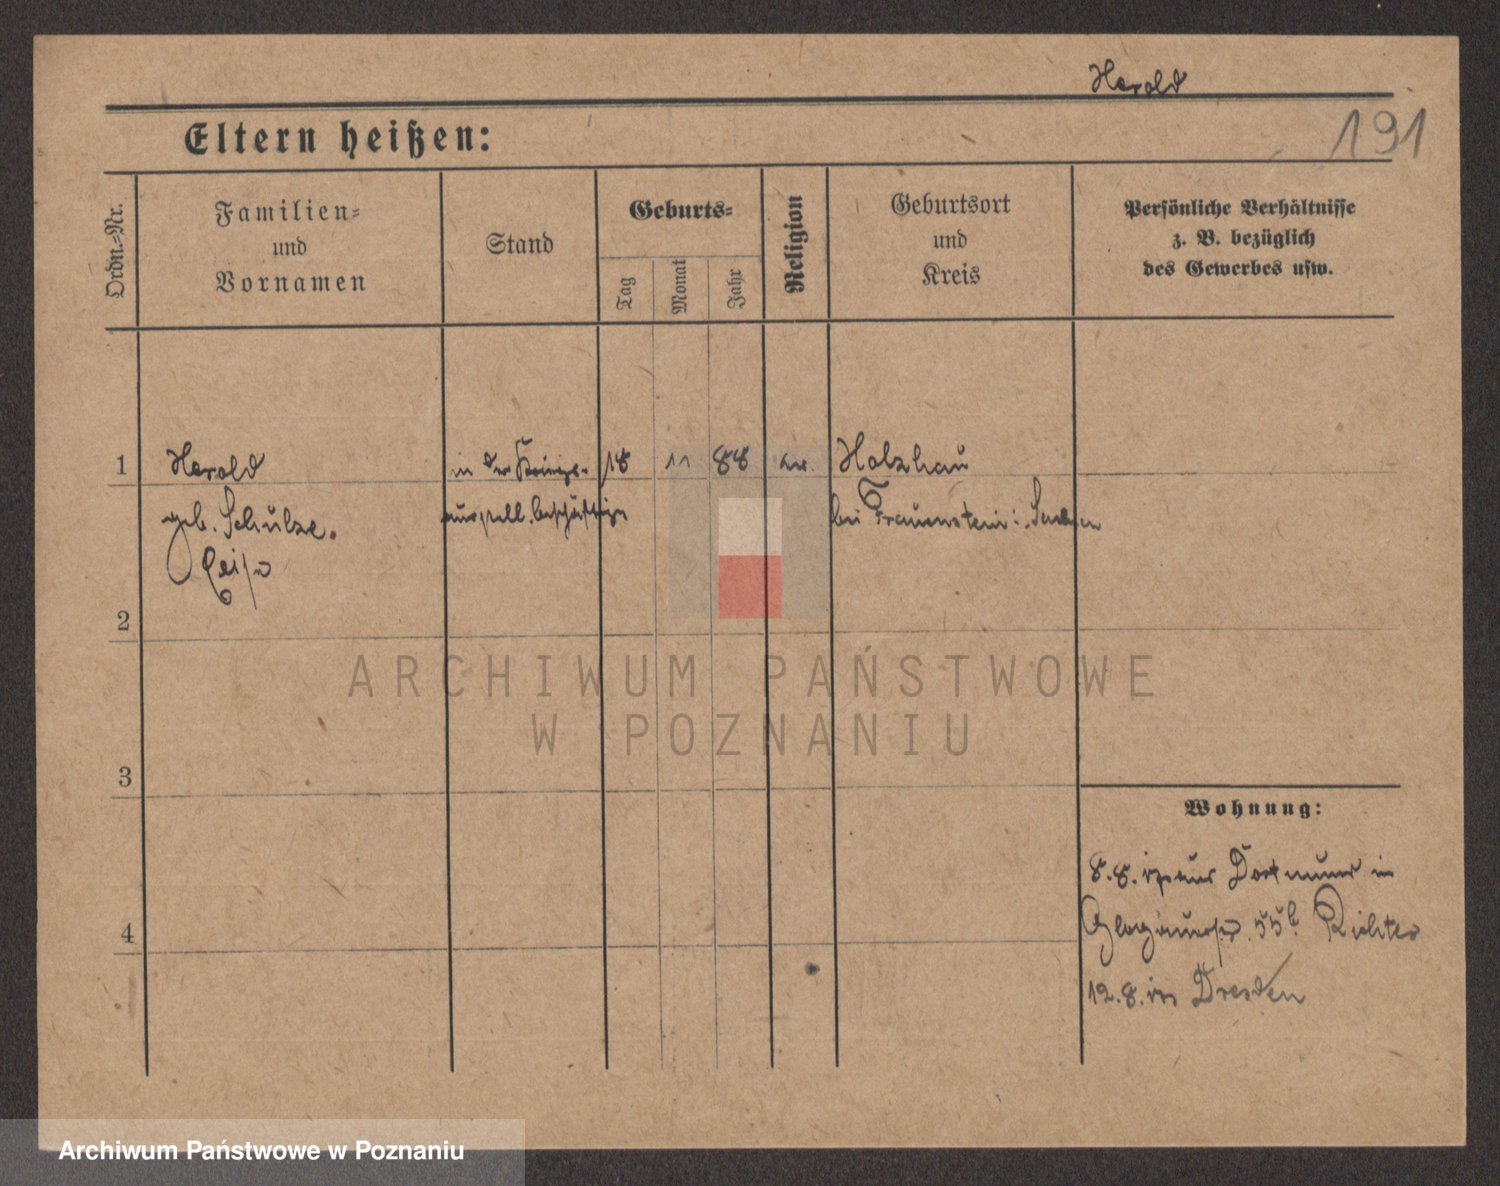 Herold
191
Eltern heißen:
Ordn.=Nr.
Familien=
und
Vornamen
Stand
Geburts=
Tag
Monat
Jahr
Religion
Geburtsort
und
Kreis
Persönliche Verhältnisse
z. B. bezüglich
des Gewerbes usw.
1
Herold
in der Kriegs-
18
11
88
ev.
Holzhau
geb. Schulze.
ausstell. beschäftigt
bei Frauenstein i. Sachsen
2
3
4
ARCHIWUM PAŃSTWOWE
W POZNANIU
Wohnung:
8.8. aus Dortmund in
Glogauerstr. 55 Richter
12.8. in Dresden
Archiwum Państwowe w Poznaniu